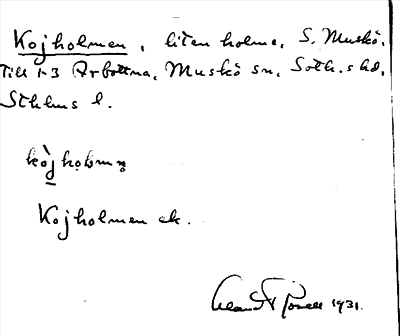 Kojholmen, liten holme, S. Muskö.
Till 1-3 Arbottna, Muskö sn, Soth.s hd,
Sthlms l.
kòjhọlmṇ
Kojholmen ek.
1931.